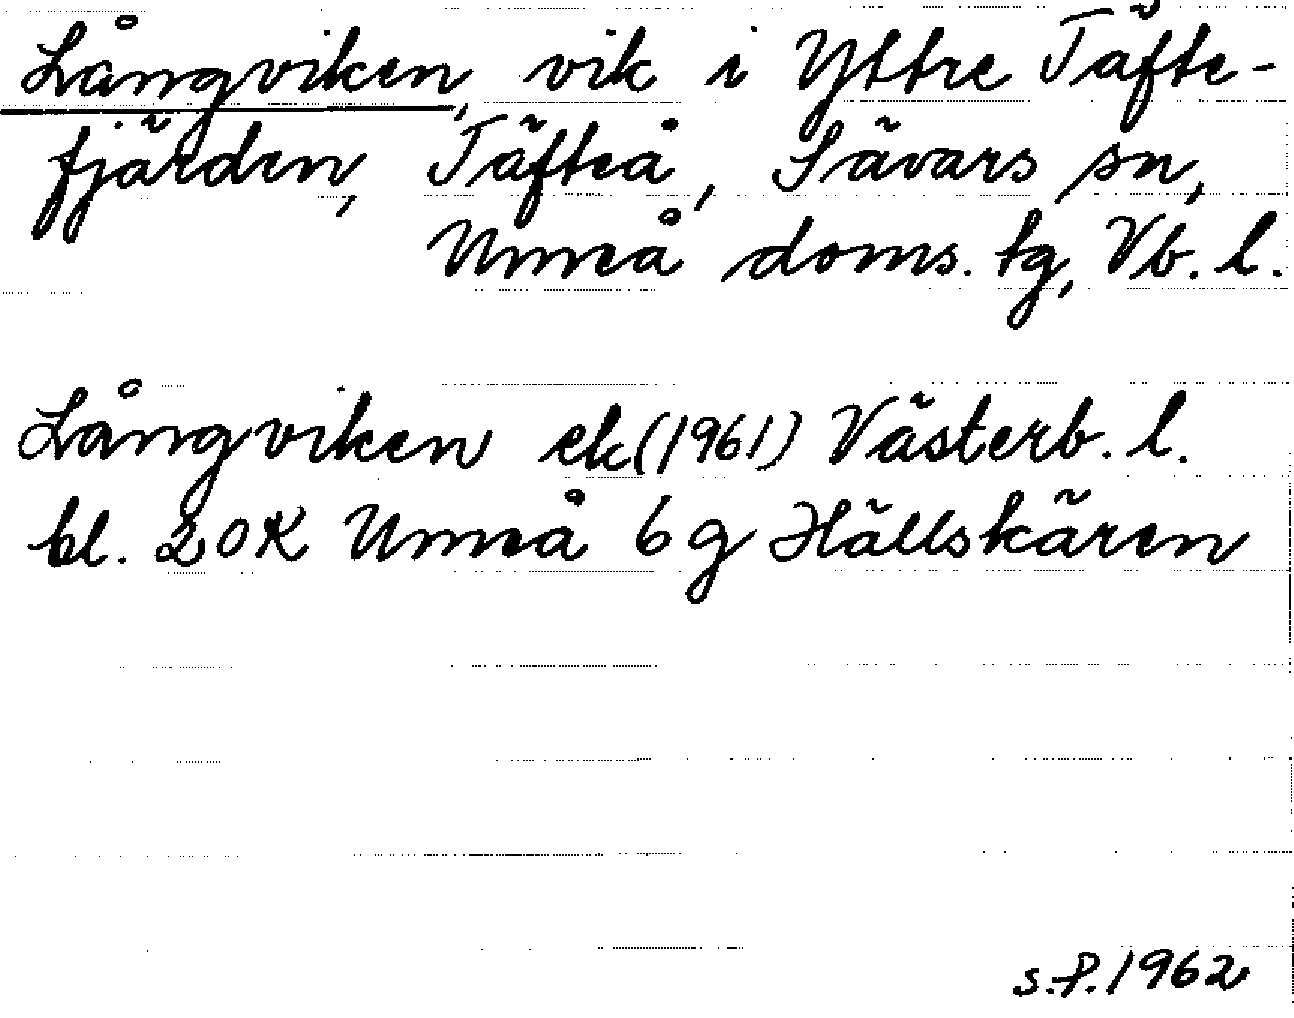 Långviken, vik i Yttre Täfte-
fjärden, Täfteå, Sävars sn,
Umeå doms. tg, Vb. l.
Långviken ek (1961) Västerb. l.
bl. 20K Umeå 6 g Hällskären
s.P. 1962